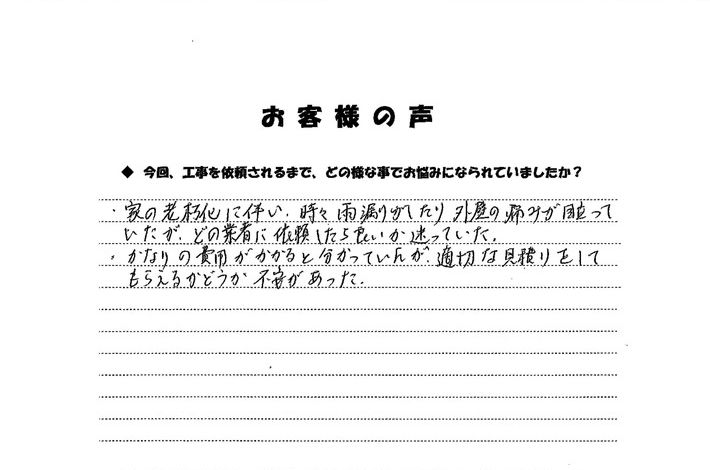 お客様の声
◆ 今回、工事を依頼されるまで、どの様な事でお悩みになられていましたか?
・家の老朽化に伴い、時々雨漏りがしたり外壁の痛みが目立って
いたが、どの業者に依頼したら良いか迷っていた。
・かなりの費用がかかると分かっていたが、適切な見積りをして
もらえるかどうか不安があった。